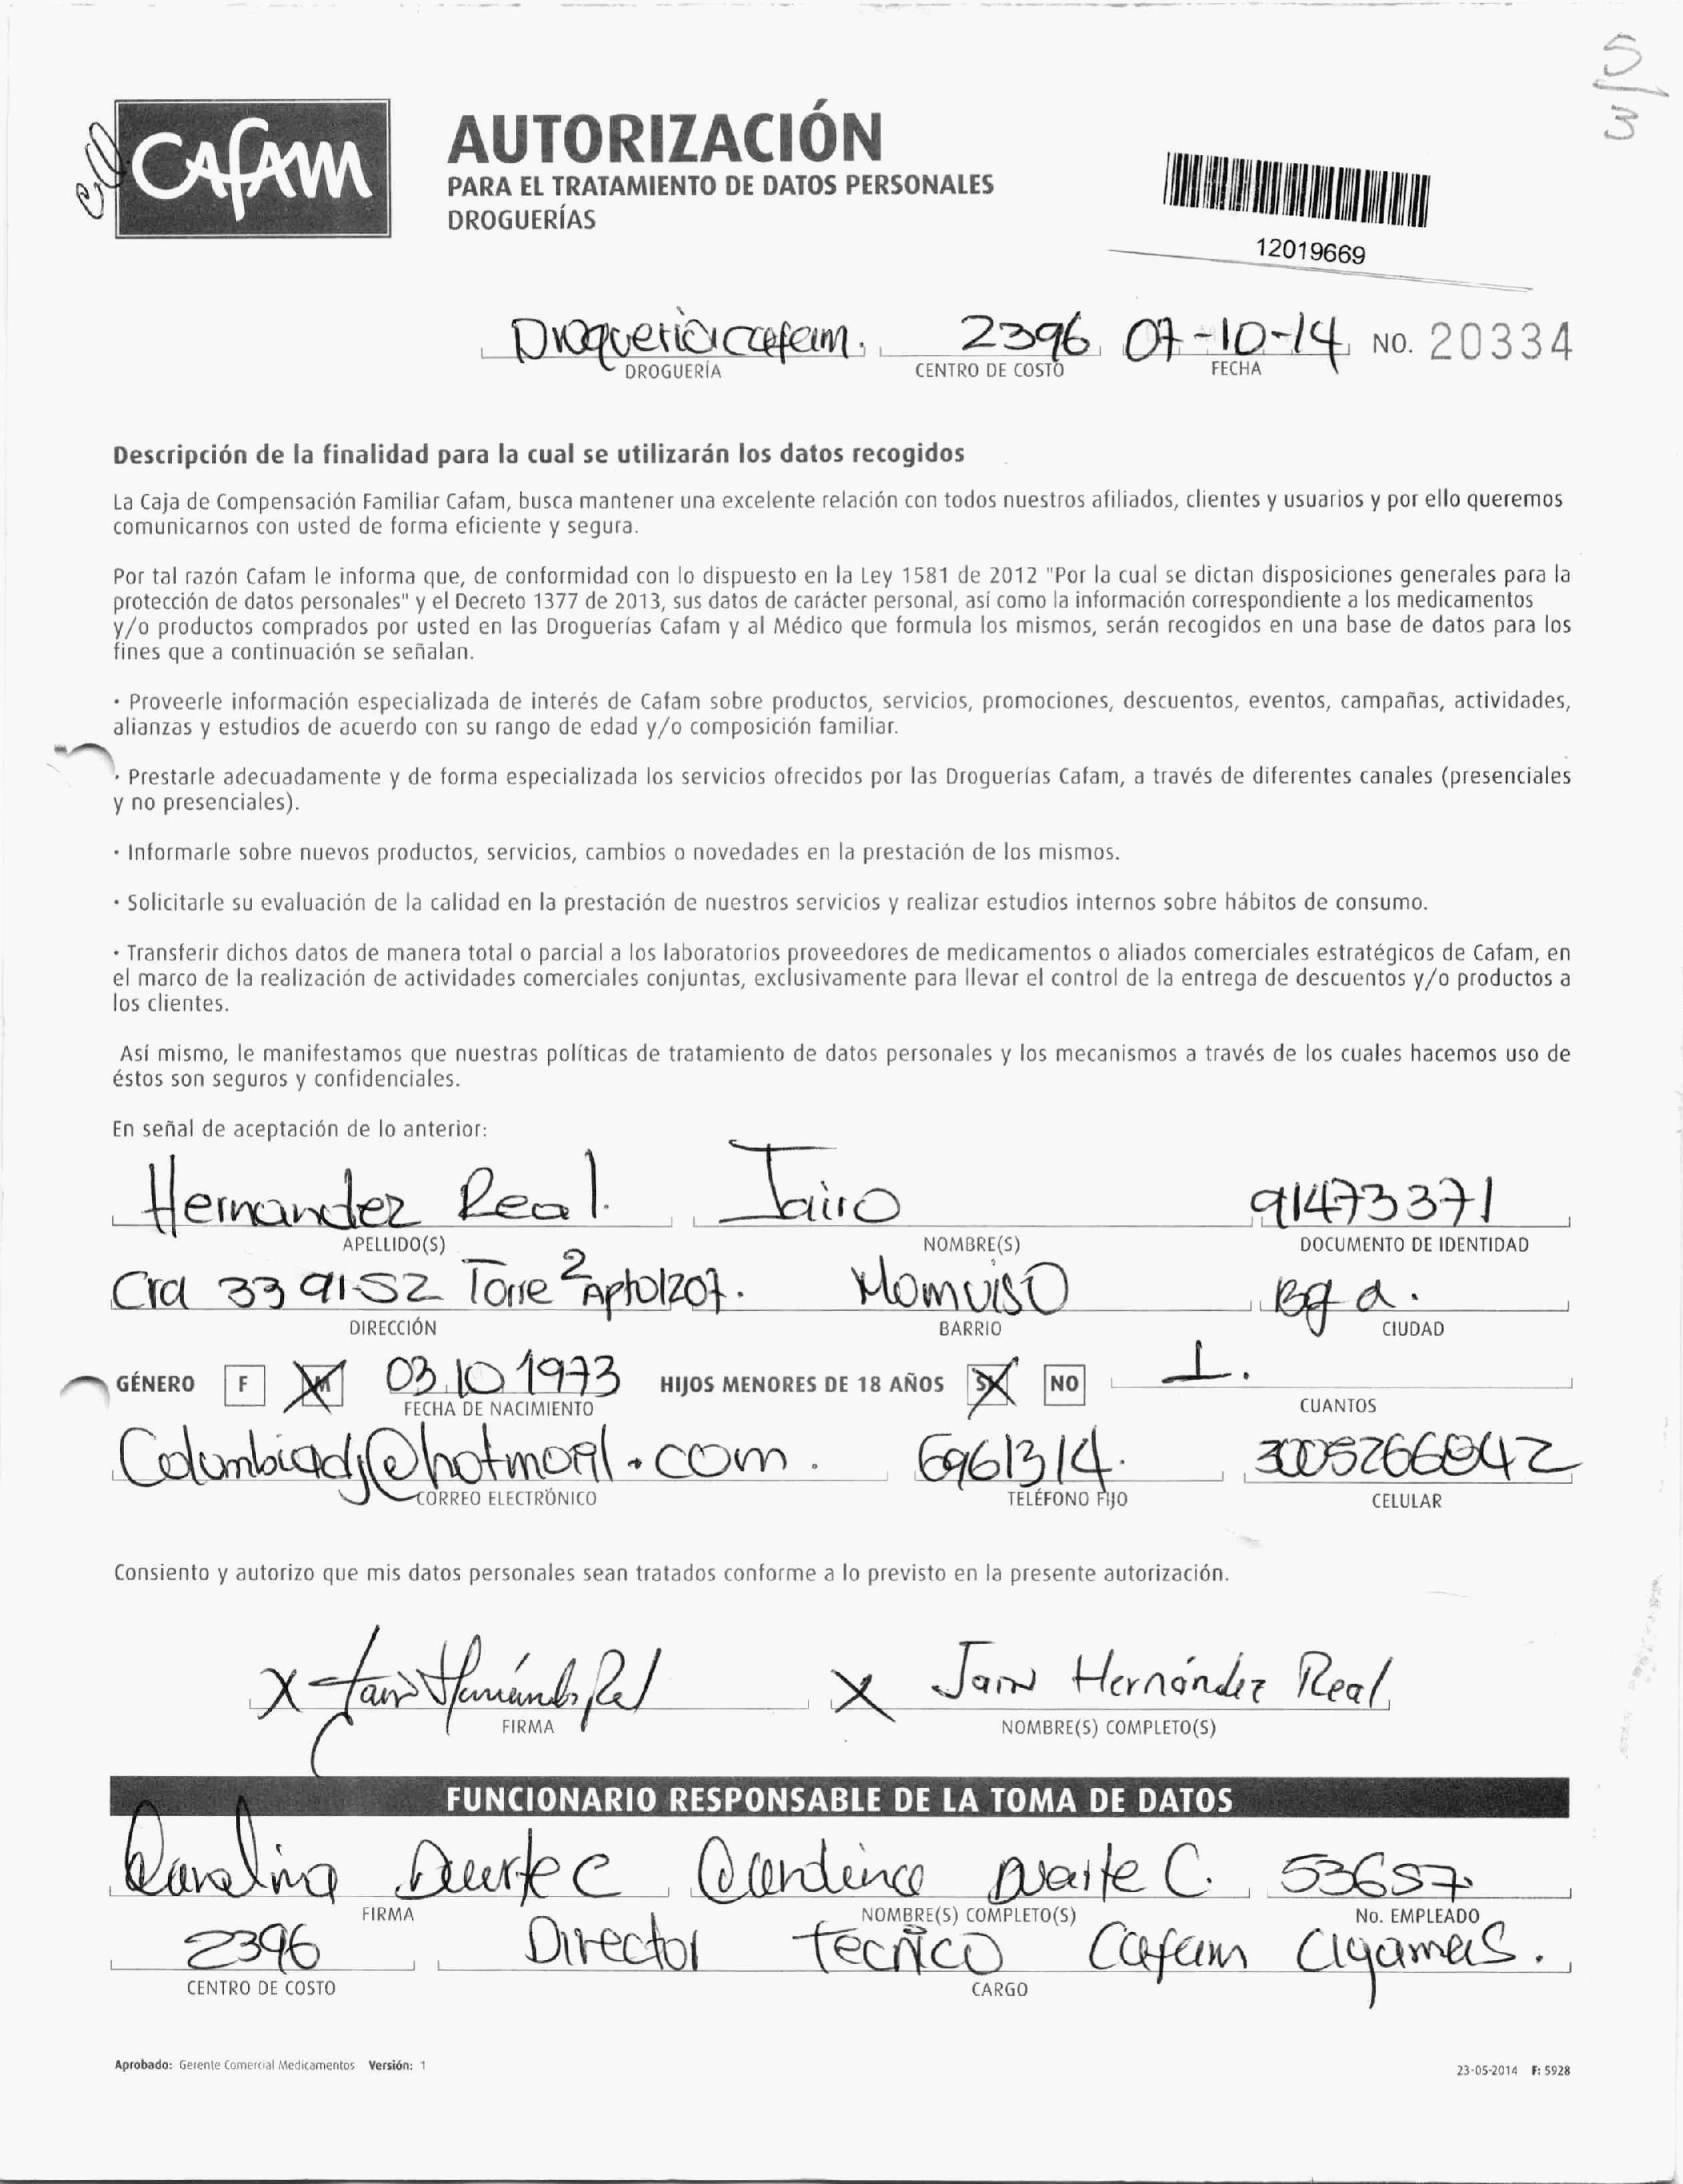 5
3
Cafam
AUTORIZACIÓN
PARA EL TRATAMIENTO DE DATOS PERSONALES
DROGUERÍAS
12019669
Drogueria cafam. 2396 07-10-14 NO. 20334
DROGUERÍA CENTRO DE COSTO FECHA
Descripción de la finalidad para la cual se utilizarán los datos recogidos
La Caja de Compensación Familiar Cafam, busca mantener una excelente relación con todos nuestros afiliados, clientes y usuarios y por ello queremos
comunicarnos con usted de forma eficiente y segura.
Por tal razón Cafam le informa que, de conformidad con lo dispuesto en la Ley 1581 de 2012 "Por la cual se dictan disposiciones generales para la
protección de datos personales" y el Decreto 1377 de 2013, sus datos de carácter personal, así como la información correspondiente a los medicamentos
y/o productos comprados por usted en las Droguerías Cafam y al Médico que formula los mismos, serán recogidos en una base de datos para los
fines que a continuación se señalan.
· Proveerle información especializada de interés de Cafam sobre productos, servicios, promociones, descuentos, eventos, campañas, actividades,
alianzas y estudios de acuerdo con su rango de edad y/o composición familiar.
· Prestarle adecuadamente y de forma especializada los servicios ofrecidos por las Droguerías Cafam, a través de diferentes canales (presenciales
y no presenciales).
· Informarle sobre nuevos productos, servicios, cambios o novedades en la prestación de los mismos.
· Solicitarle su evaluación de la calidad en la prestación de nuestros servicios y realizar estudios internos sobre hábitos de consumo.
· Transferir dichos datos de manera total o parcial a los laboratorios proveedores de medicamentos o aliados comerciales estratégicos de Cafam, en
el marco de la realización de actividades comerciales conjuntas, exclusivamente para llevar el control de la entrega de descuentos y/o productos a
los clientes.
Así mismo, le manifestamos que nuestras políticas de tratamiento de datos personales y los mecanismos a través de los cuales hacemos uso de
éstos son seguros y confidenciales.
En señal de aceptación de lo anterior:
Hernandez Real. Jairo 91473371
APELLIDO(S) NOMBRE(S) DOCUMENTO DE IDENTIDAD
Cra 33 91-52 Torre 2 Apto1207. Bga.
DIRECCIÓN BARRIO CIUDAD
GÉNERO F M 03.10 1973 HIJOS MENORES DE 18 AÑOS SI NO 1.
FECHA DE NACIMIENTO CUANTOS
Columbiadj@hotmail.com. 6961314. 3005266842
CORREO ELECTRÓNICO TELÉFONO FIJO CELULAR
Consiento y autorizo que mis datos personales sean tratados conforme a lo previsto en la presente autorización.
X Jairo Hernández Rl X Jairo Hernández Real
FIRMA NOMBRE(S) COMPLETO(S)
FUNCIONARIO RESPONSABLE DE LA TOMA DE DATOS
Carolina Duarte C Duarte C. 53657.
FIRMA NOMBRE(S) COMPLETO(S) No. EMPLEADO
2396 Director tecnico Cafam
CENTRO DE COSTO CARGO
Aprobado: Gerente Comercial Medicamentos Versión: 1
23-05-2014 F: 5928